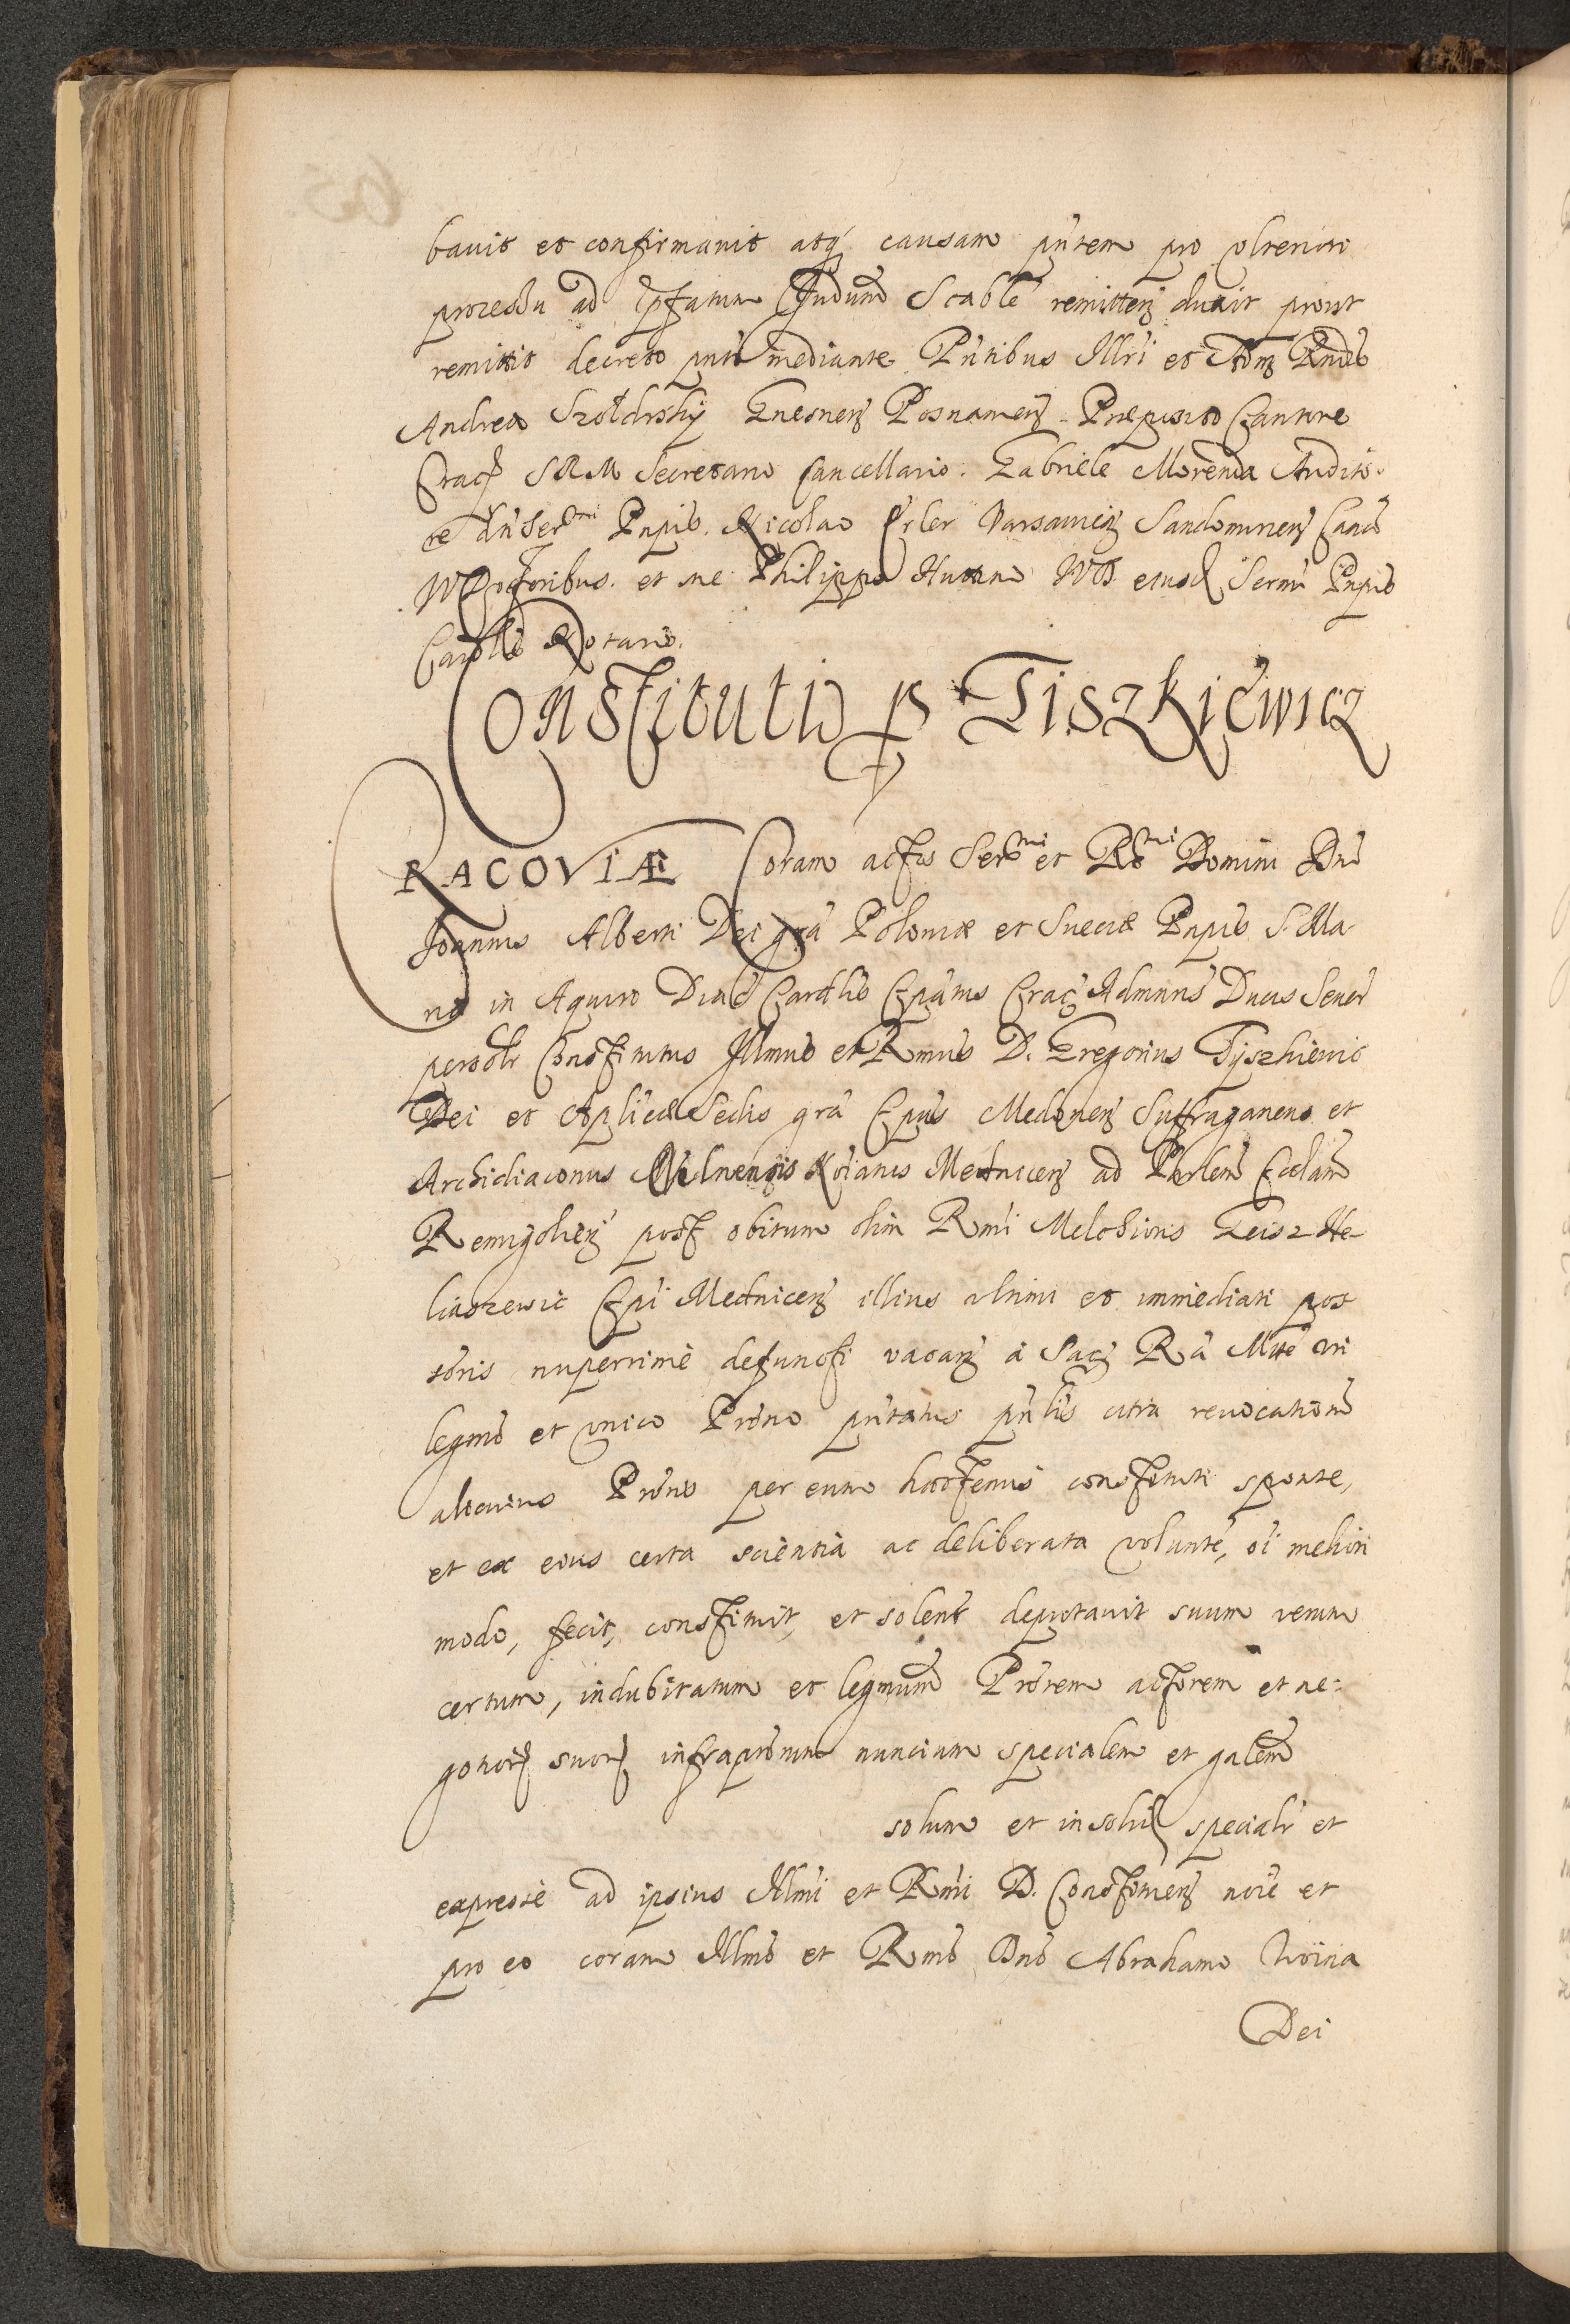 bavit et confirmavit atq causam pntem pro ulteriori
processu ad Ipsatum Iudum Scable remitten duxit prout
remittit decreto pnti mediante. Pntibus Illri et Adm Rndo
Andrea Szołdrsky Gnesnen Posnanien Praeposito Cantore
Crac SRM Secretario Cancellario. Gabriele Morenda Audito-
re Dn Sermi Pnpis. Nicolao Erler Varsavien Sandomirien Canco
Doctoribus. et me Philippo Huttin IVD eiusd Sermi Pnpis
Cardlis Notario.
Constitutio ps Tiszkiewicz
CRACOVIÆ Coram actis Sermi et Rmi Domini Dni
Joannis Alberti Dei gra Poloniæ et Sueciæ Pnpis S. Ma-
riæ in Aquiro Diac Cardlis Epatus Crac Admnris Ducis Sever
persolr Constitutus Illmus et Rmus D. Gregorius Tyszkievic
Dei et Aplicæ Sedis gra Epus Medonen Suffraganeus et
Archidiaconus Vilnensis Noianus Mednicen ad Phrlem Ecclam
Remigolien post obitum olim Rmi Melchioris Geisz He-
liaszewic Epi Mednicen illius ultimi et immediati pos
soris nuperrime defuncti vacan a Sac Ra Mtte uti
legmo et unico Prono pntatus pnlis citra revocationem
alicuius Prôris per eum hactenus constituti sponte,
et ex eius certa scientia ac deliberata volunte, oi meliori
modo, fecit, constituit, et solenr deputavit suum verum
certum, indubitatum et legmum Prorem actorem et ne:
gotior suor infraptorum nuncium specialem et gnalem
solum et insolid specialr et
expresse ad ipsius Illmi et Rmi D. Constituen noie et
pro eo coram Illmo et Rmo Dno Abrahamo Woina
Dei